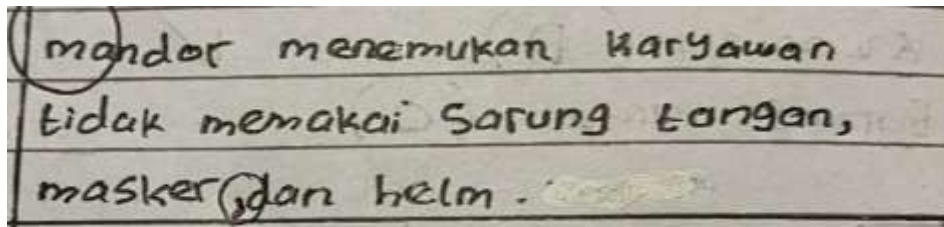 mandor menemukan Karyawan
tidak memakai Sarung tangan,
masker, dan helm.